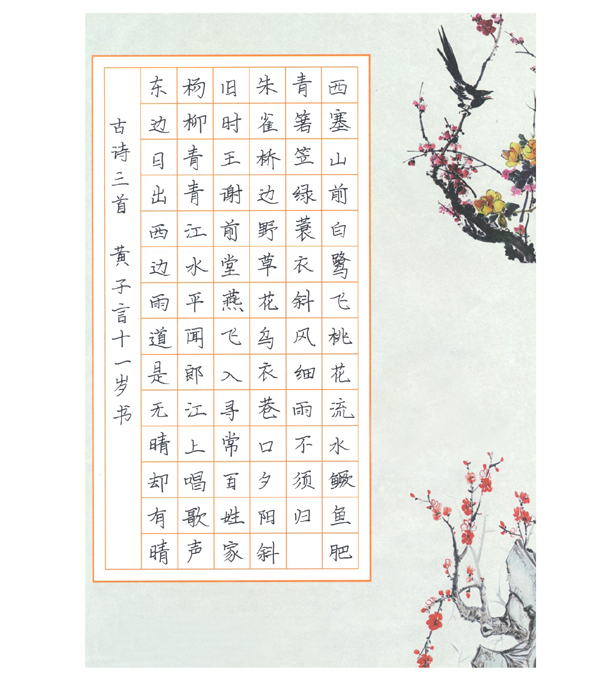 西塞山前白鹭飞桃花流水鳜鱼肥
青箬笠绿蓑衣斜风细雨不须归
朱雀桥边野草花乌衣巷口夕阳斜
旧时王谢前堂燕飞入寻常百姓家
杨柳青青江水平闻郎江上唱歌声
东边日出西边雨道是无晴却有晴
古诗三首 黄子言十一岁书